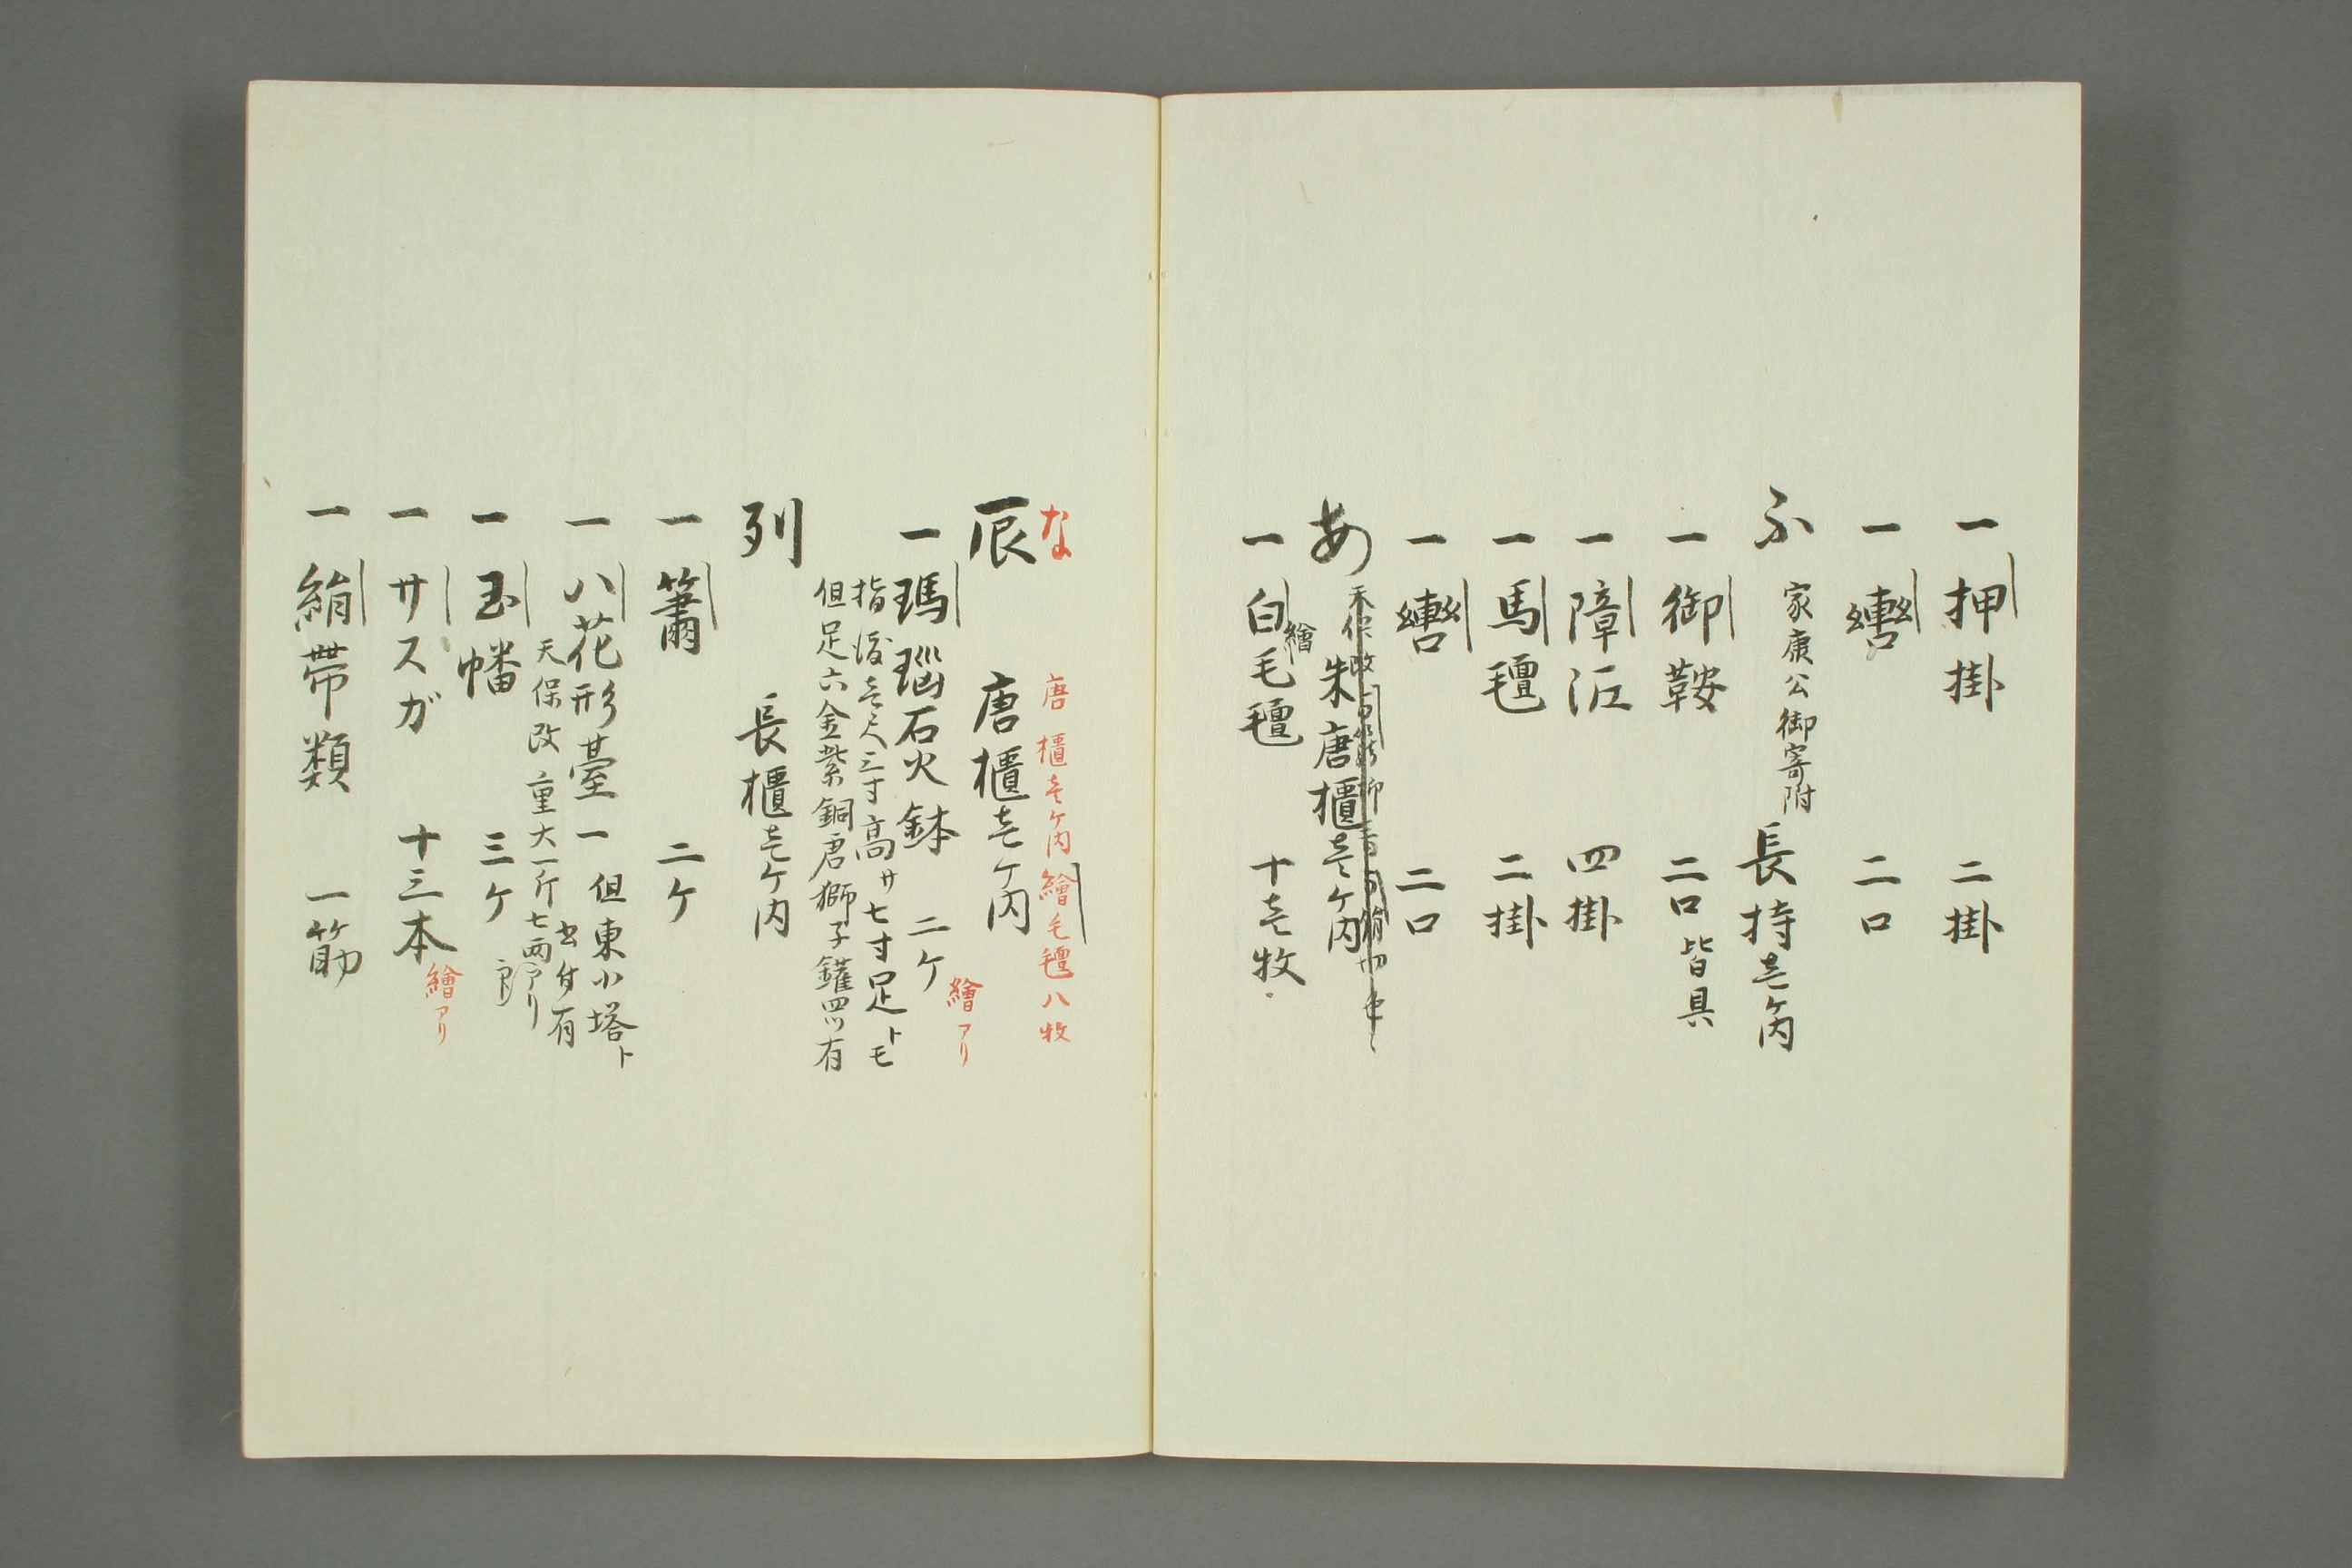 一押掛　二掛
一轡　二口
ふ　家康公御寄附　長持壱ケ内
一御鞍　二口皆具
一障泥　四掛
一馬氊　二掛
一轡　二口
天保改
あ　朱唐櫃壱ケ内
一白毛氊　十壱牧
繪
な　唐櫃壱ケ内繪毛氊八牧
辰　唐櫃壱ケ内
一瑪瑙石火鉢　二ケ　繪アリ
指渡壱尺三寸高サ七寸足トモ
但足六金紫銅唐獅子鐶四ツ有
列　長櫃壱ケ内
一簫　二ケ
一八花形臺一　但東小塔ト
書付有
天保改　重大一斤七両アリ
一玉幡　三ケ
一サスガ　十三本　繪アリ
一絹帯類　一筋